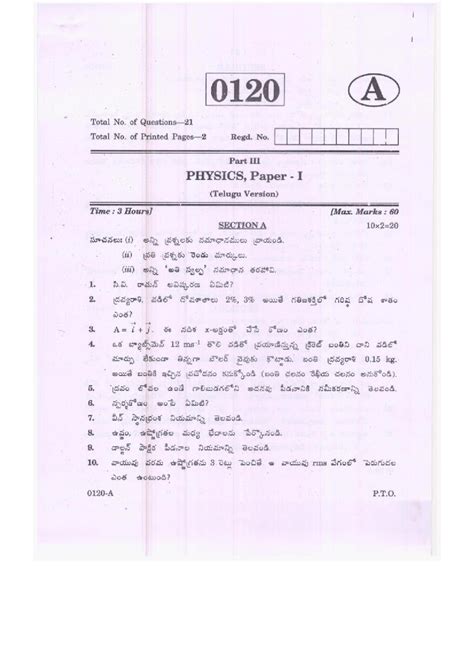 0120
A
Total No. of Questions—21
Total No. of Printed Pages—2 Regd. No.
Part III
PHYSICS, Paper - I
(Telugu Version)
Time : 3 Hours] [Max. Marks : 60
SECTION A 10×2=20
సూచనలు: (i) అన్ని ప్రశ్నలకు సమాధానములు వ్రాయండి.
(ii) ప్రతి ప్రశ్నకు రెండు మార్కులు.
(iii) అన్ని 'అతి స్వల్ప' సమాధాన తరహావి.
1. సి.వి. రామన్ ఆవిష్కరణ ఏమిటి?
2. ద్రవ్యరాశి, వడిలో దోషశాతాలు 2%, 3% అయితే గతిజశక్తిలో గరిష్ఠ దోష శాతం
ఎంత?
3. A = i + j. ఈ సదిశ x-అక్షంతో చేసే కోణం ఎంత?
4. ఒక బ్యాట్స్‌మెన్ 12 ms⁻¹ తొలి వడితో ప్రయాణిస్తున్న క్రికెట్ బంతిని దాని వడిలో
మార్పు లేకుండా తిన్నగా బౌలర్ వైపుకు కొట్టాడు. బంతి ద్రవ్యరాశి 0.15 kg.
అయితే బంతికి ఇచ్చిన ప్రచోదనం కనుక్కోండి (బంతి చలనం రేఖీయ చలనం అనుకోండి).
5. ద్రవం లోపల ఉండే గాలిబుడగలోని అదనపు పీడనానికి సమీకరణాన్ని తెలపండి.
6. స్పర్శకోణం అంటే ఏమిటి?
7. వీన్ స్థానభ్రంశ నియమాన్ని తెలపండి.
8. ఉష్ణం, ఉష్ణోగ్రతల మధ్య భేదాలను పేర్కొనండి.
9. డాల్టన్ పాక్షిక పీడనాల నియమాన్ని తెలపండి.
10. వాయువు పరమ ఉష్ణోగ్రతను 3 రెట్లు పెంచితే ఆ వాయువు rms వేగంలో పెరుగుదల
ఎంత ఉంటుంది?
0120-A P.T.O.